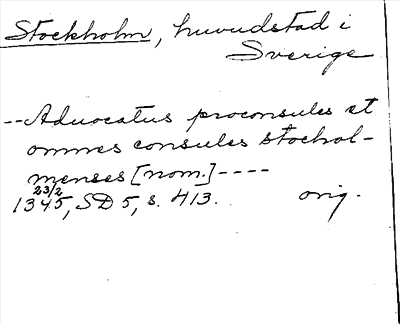 Stockholm, huvudstad i
Sverige
--Aduocatus proconsules et
omnes consules stochol-
menses [nom.]----
23/2
1345, SD 5, s. 413. orig.